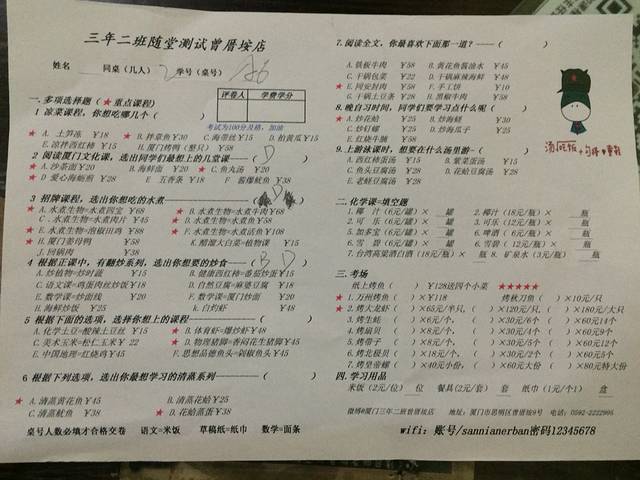 三年二班随堂测试曾厝垵店
姓名 同桌（几人） 2 学号（桌号） A6
评卷人 学费学分
一.多项选择题（★重点课程）
1 凉菜课程，你想吃哪几个（ ）
考试为100分及格，加油
★ A. 土笋冻 ¥18 ★ B.拌章鱼¥30 C.海带丝¥15 D.拍黄瓜¥15
E.凉拌西红柿 ¥15 H.厦门烤鸭（整只） ¥58
2 阅读厦门文化课，选出同学们最想上的几堂课——（ D ）
★ A.沙茶面¥20 B.海鲜面 ¥20 ★ C.鱼丸汤 ¥20
★ D 爱心海蛎煎 ¥28 E 五香条 ¥18 F 酱爆鱿鱼 ¥38
3 招牌课程，选出你想吃的水煮——（ D ）
★ A.水煮生物=水煮四宝 ¥68 ★ B.水煮生物=水煮牛肉¥68
C.水煮生物=水煮肉片 ¥45 ★ D.水煮生物=水煮活鱼¥58
★ E.水煮生物=泡椒田鸡 ¥88 ★ F.水煮生物=水煮活鱼¥108
★ H.厦门姜母鸭 ¥58 K.醋溜大白菜=植物课 ¥15
J.回锅肉 ¥38
4 根据正课中，有翻炒系列，选出你想要的炒食——（ B D ）
A.炒植物=炒时蔬 ¥15 B.健康西红柿=番茄炒蛋¥15
C.语文课=鸡蛋肉丝炒饭¥18 D.自然豆腐=麻婆豆腐 ¥18
E.数学课=炒面线 ¥20 F.数学课=厦门炒面 ¥20
H.海鲜炒饭 ¥25 k.白灼虾 ¥48
5 根据下面的选项，选择你想上的课程——（ ）
A.化学土豆=酸辣土豆丝 ¥15 ★ B.体育虾=爆炒虾¥48
C.美术玉米=松仁玉米¥ 22 ★ D.物理猪脚=香闷花生猪脚¥45
E.中国地理=红烧鸡¥45 F.思想品德鱼头=剁椒鱼头¥45
6 根据下列选项，选出你最想学习的清蒸系列——（ ）
★ A.清蒸黄花鱼 ¥45 B.清蒸花蛤¥25
C.清蒸鱿鱼 ¥38 ★ D.花蛤蒸蛋¥38
桌号人数必填才合格交卷 语文=米饭 草稿纸=纸巾 数学=面条
7.阅读全文，你最喜欢下面那一道？——（ ）
A.铁板牛肉 ¥58 B.黄花鱼酱油水 ¥45
C.干锅包菜 ¥22 D.干锅麻辣海鲜 ¥48
★ E.同安封肉 ¥58 F.手工饼 ¥10
G.干锅土豆条 ¥28 H.黑椒牛肉 ¥58
8.晚自习时间，同学们要学习点什么呢（ ）
★ A.炒花蛤 ¥25 B.炒海蛏 ¥30
C.炒钉螺 ¥25 D.炒海瓜子 ¥25
E.红烧牛腩 ¥58
9.上游泳课时，想要在什么汤里游？——（ ）
A.西红柿蛋汤 ¥15 B.紫菜蛋汤 ¥15
C.鱼头豆腐汤 ¥28 D.花蛤豆腐汤 ¥28
E.老鲟豆腐汤 ¥28
二.化学课=填空题
1.椰 汁（6元/罐）× 罐 2.椰汁（18元/瓶）× 瓶
2.可 乐（6元/罐）× 罐 3.可乐（12元/瓶）× 瓶
5.加多宝（6元/罐）× 罐 6.啤酒（ 6元/瓶）× 瓶
6.雪 碧（6元/罐）× 罐 6.雪碧（ 12元/瓶）× 瓶
7.台湾高粱酒白酒（18元/瓶）× 瓶 8.矿泉水（3元/瓶） 瓶
三.考场
纸上烤鱼（ ）¥128送四个小菜 ★★★★★
★ 1.万州烤鱼（ ）×¥118 烤秋刀鱼（ ）×10元/只
★ 2.烤大龙虾（ ）×65元/半只，（ ）×120元/只，（ ）×180元/大只
3.烤生蚝（ ）×6元/个，（ ）×30元/6个（ ）×60元14个
4.烤扇贝（ ）×8元/个，（ ）×30元/4个（ ）×60元9个
5.烤带子（ ）×8元/个，（ ）×30元/5个（ ）×60元12个
6.烤北极贝（ ）×18元/个，（ ）×30元/2个（ ）×60元5个
7.烤皇帝螺（ ）×40元小份，（ ）×60元大份（ ）×80元特大份
四.学习用品
米饭（2元/位） 位 餐具(2元/套) 套 纸巾（1元/个1） 盒
微博@厦门三年二班曾厝垵店 地址：厦门市思明区曾厝垵9号 电话：0592-2222995
wifi：账号/sannianerban密码12345678